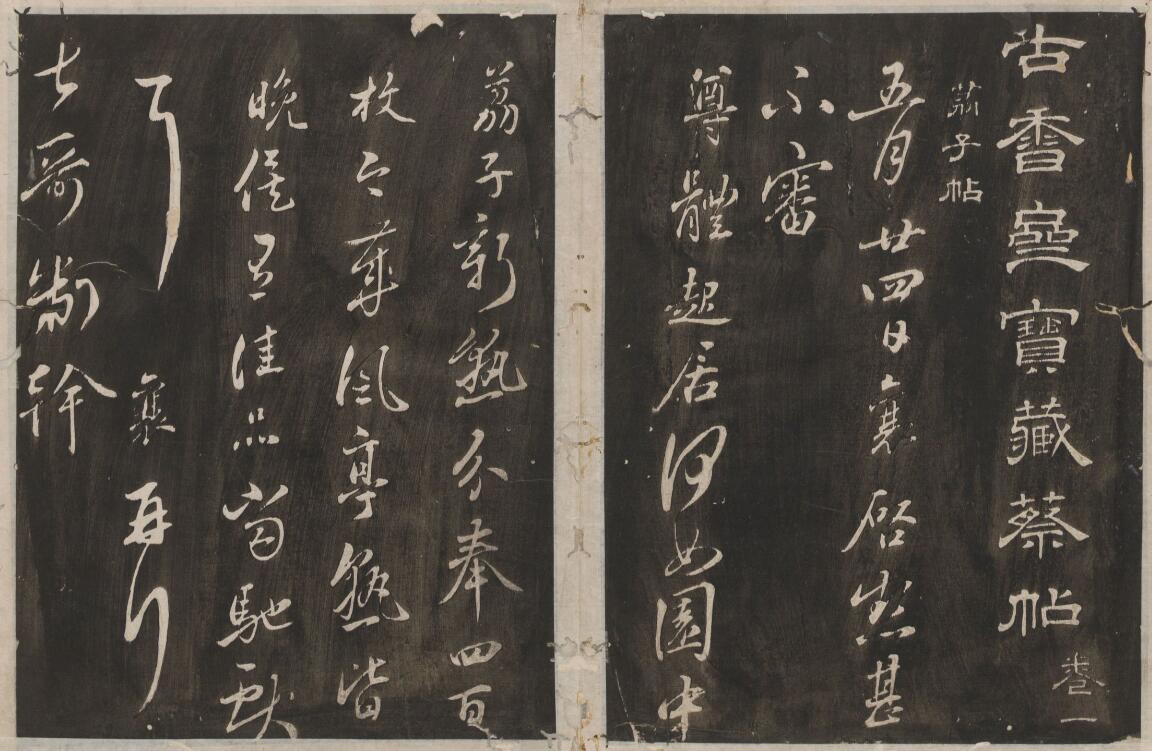 古香齋寶藏蔡帖
卷一
茘子帖
五月廿四日襄啓㷡甚
不審
尊體起居何如園中
荔子新熟分奉四百
枚亦華風亭熟皆
晚僅有佳品當馳獻
耳
襄再行
七哥
幹